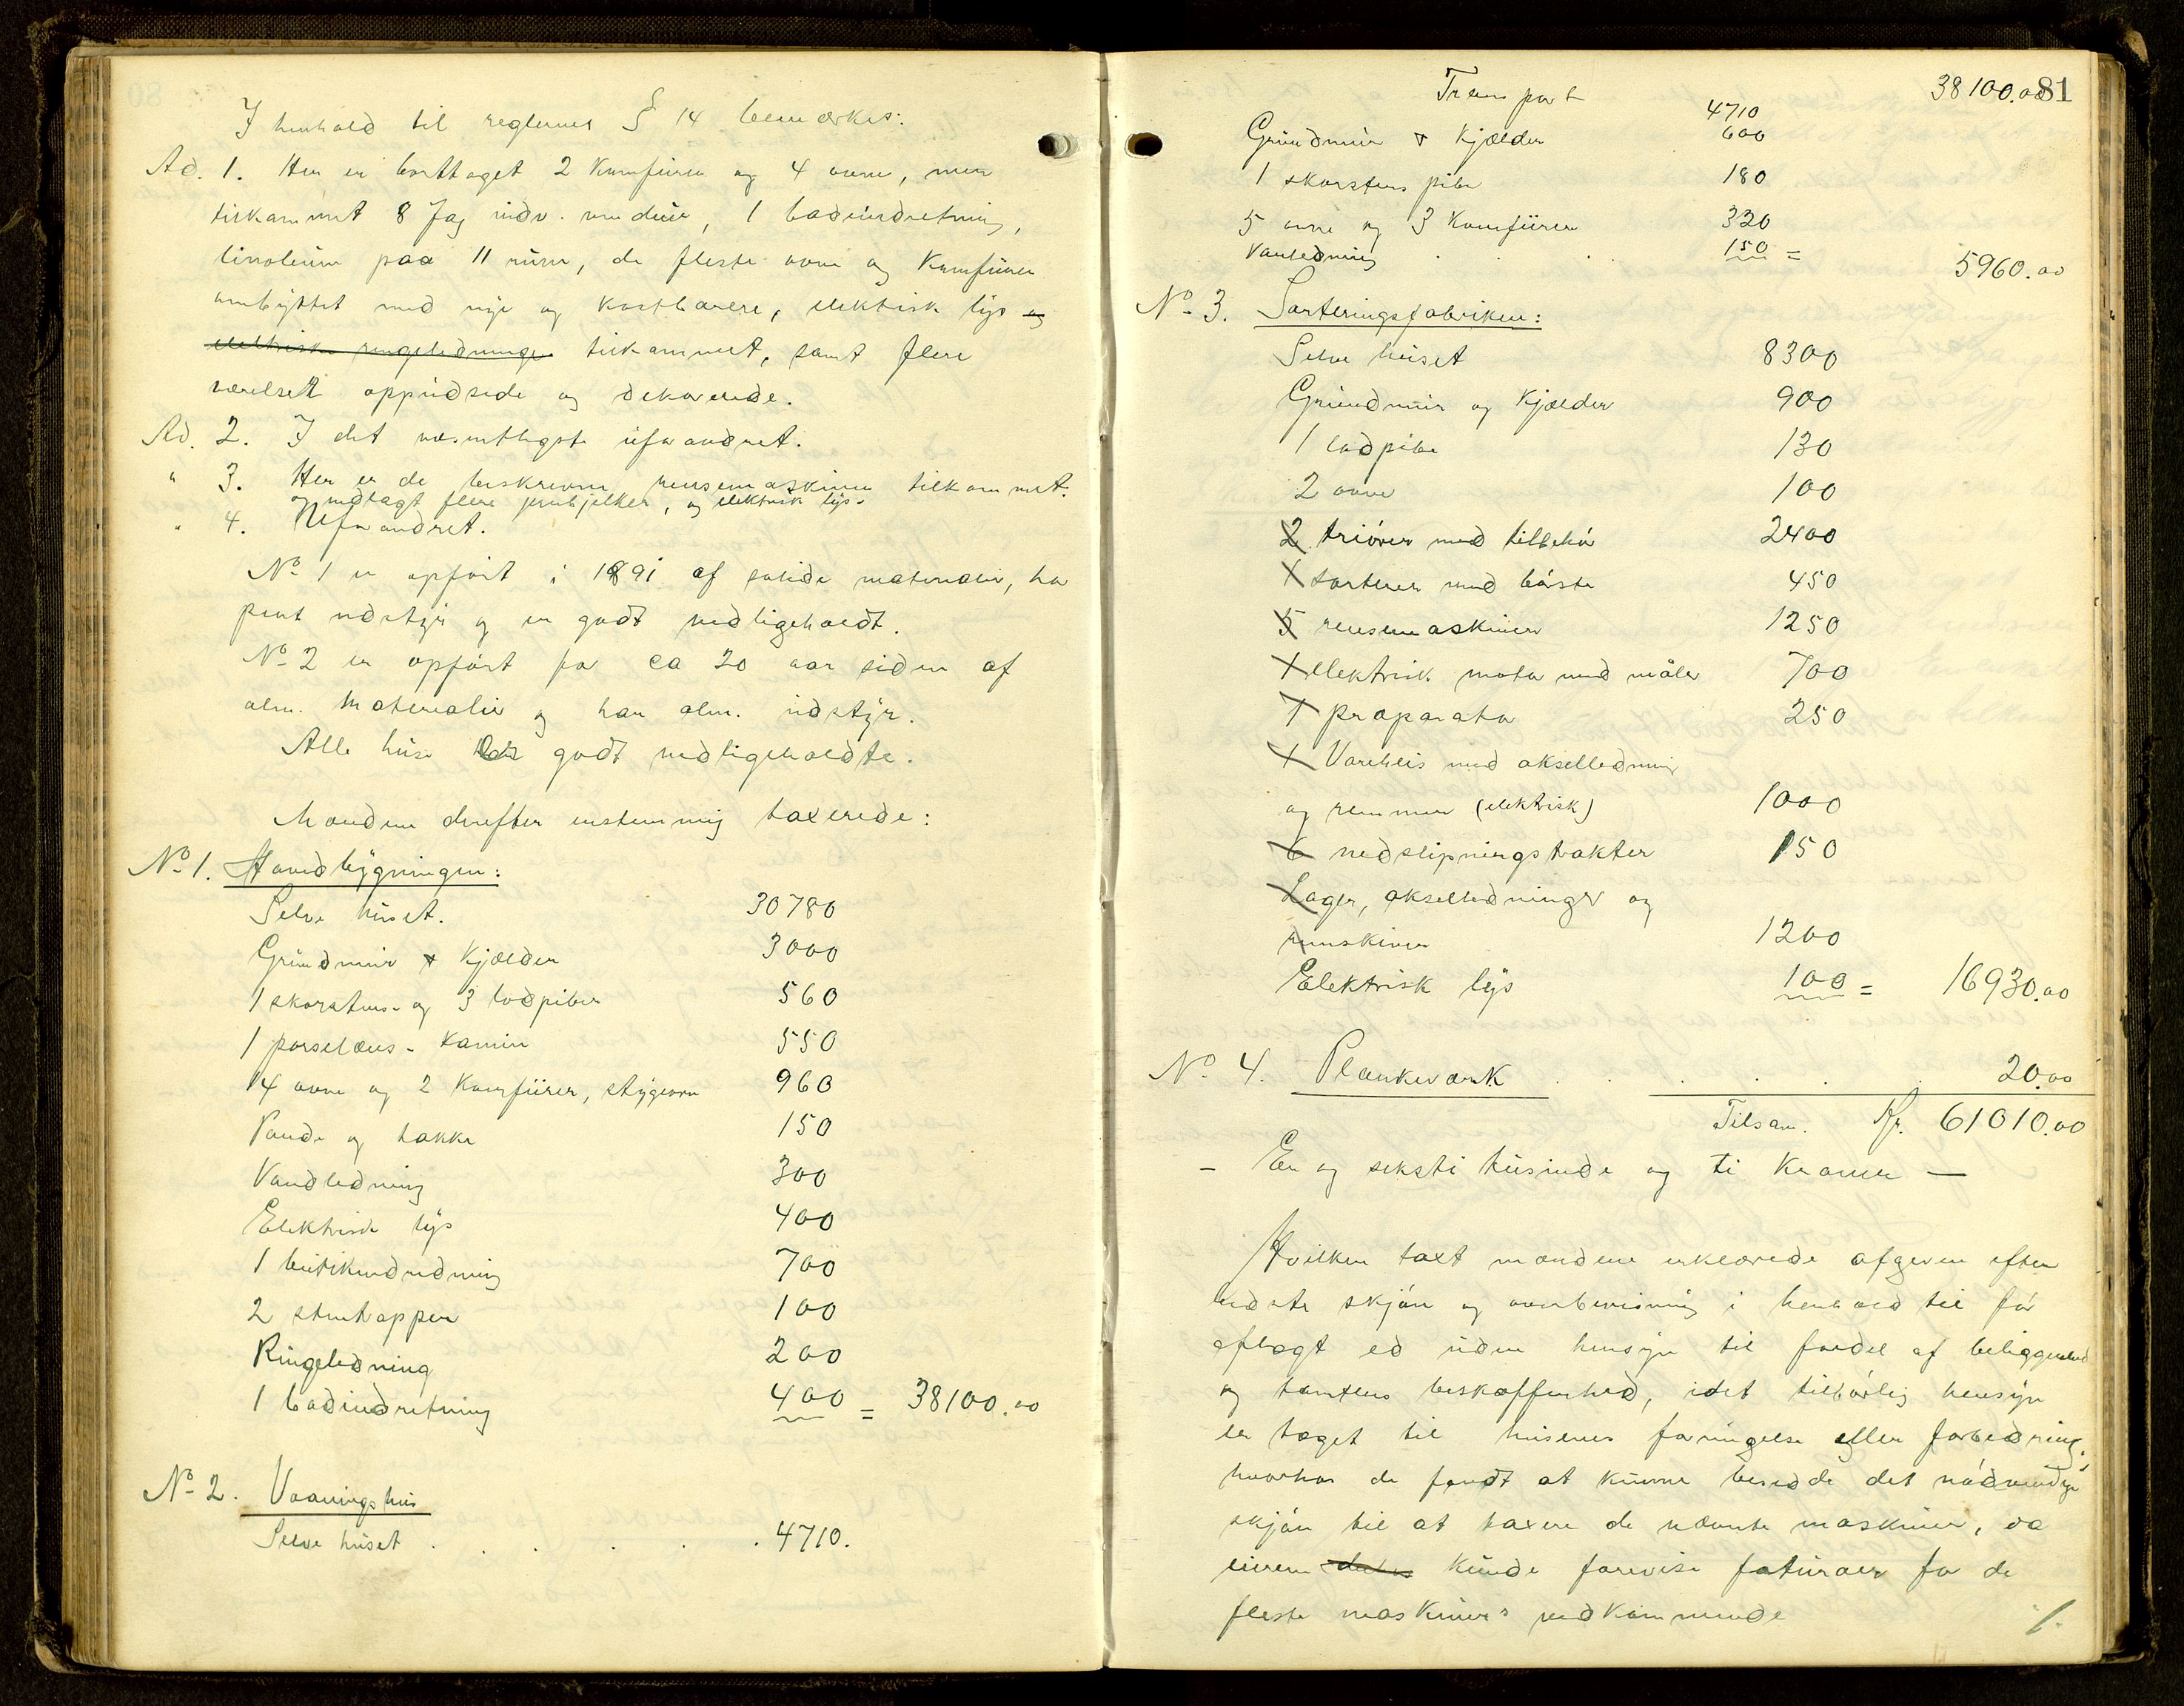 I henhold til reglernes § 14 bemærkes:
Ad. 1. Her er borttaget 2 Komfurer og 4 ovne, men
tilkommet 8 fag indv. vinduer, 1 badeindretning,
linoleum paa 11 rum, de fleste ovne og Komfurer
ombyttet med nye og kostbarere, elektrisk lys og
elektriske ringeledninger tilkommet, samt flere
værelser oppudsede og dekorerede.
Ad. 2. I det væsentligste uforandret.
" 3. Her er de beskrevne rensemaskiner tilkommet.
og indlagt flere jernbjelker, og elektrisk lys.
" 4. Uforandret.
No 1 er opført i 1891 af solide materialier, har
pent udstyr og er godt vedligeholdt.
No 2 er opført for ca 20 aar siden af
alm. materialier og har alm. udstyr.
Alle huse er godt vedligeholdte.
Mændene derefter enstemmig taxerede:
No 1. Hovedbygningen:
Selve huset. 30780
Grundmur & Kjælder 3000
1 skorstens- og 3 lodpiber 560
1 porselæns-kamin 550
14 ovne og 2 Komfurer, strygeovn 960
Pande og takke 150
Vandledning 300
Elektrisk lys 400
1 butikindredning 700
2 stentapper 100
Ringeledning 200
1 badindretning 400 = 38100.00
No 2. Vaaningshus
Selve huset . . . . . . 4710.
81
Transport 38100.00
4710
Grundmur & Kjælder 600
1 skorstens pibe 180
5 ovne og 3 Komfurer 320
Vanledning . . . 150 = 5960.00
No 3. Sorteringsfabriken:
Selve huset 8300
Grundmur og Kjælder 900
1 lodpibe 130
2 ovne 100
2 triører med tilbehør 2400
1 sorterer med børste 450
5 rensemaskiner 1250
1 elektrisk motor med måler 700
1 præparator 250
1 Vareheis med akselledning
og remmer (elektrisk) 1000
6 nedslipningstrakter 150
Lager, akselledninger og
remskiver 1200
Elektrisk lys 100 = 16930.00
No 4. Plankeværk . . . . . 20.00
Tilsam. Kr. 61010.00
- En og seksti tusinde og ti Kroner -
Hvilken taxt mændene erklærede afgiven efter
bedste skjøn og overbevisning i henhold til før
aflagt ed uden hensyn til fordel af beliggenhed
og tomtens beskaffenhed, idet tilbørlig hensyn
er taget til husenes forringelse eller forbedring,
hvorhos de fandt at kunne besidde det nødvendige
skjøn til at taxere de nævnte maskiner, da
eieren kunde forevise fakturaer for de
fleste maskiners vedkommende